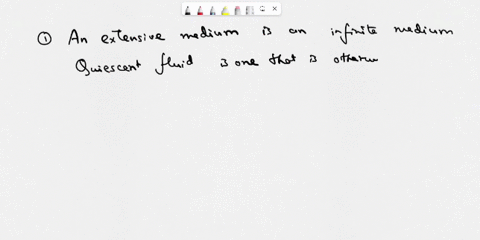 ① An extensive medium is an infinite medium
Quiescent fluid is one that is otherw